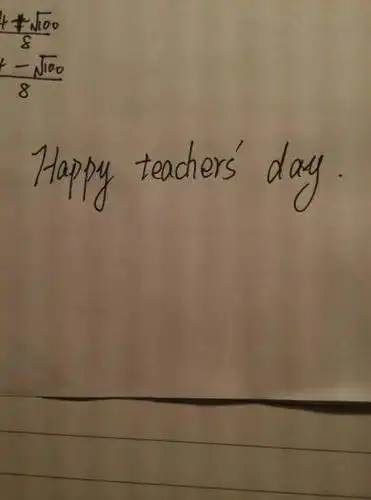 4 + √100
8
4 - √100
8
Happy teachers' day.